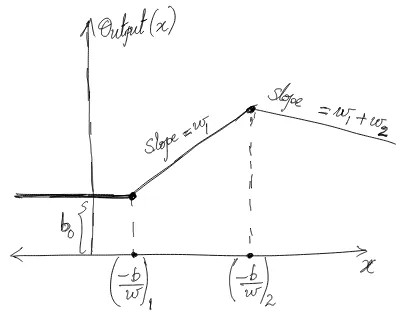 Output(x)
slope = w₁
slope = w₁ + w₂
b₀
x
(-b/w)₁
(-b/w)₂